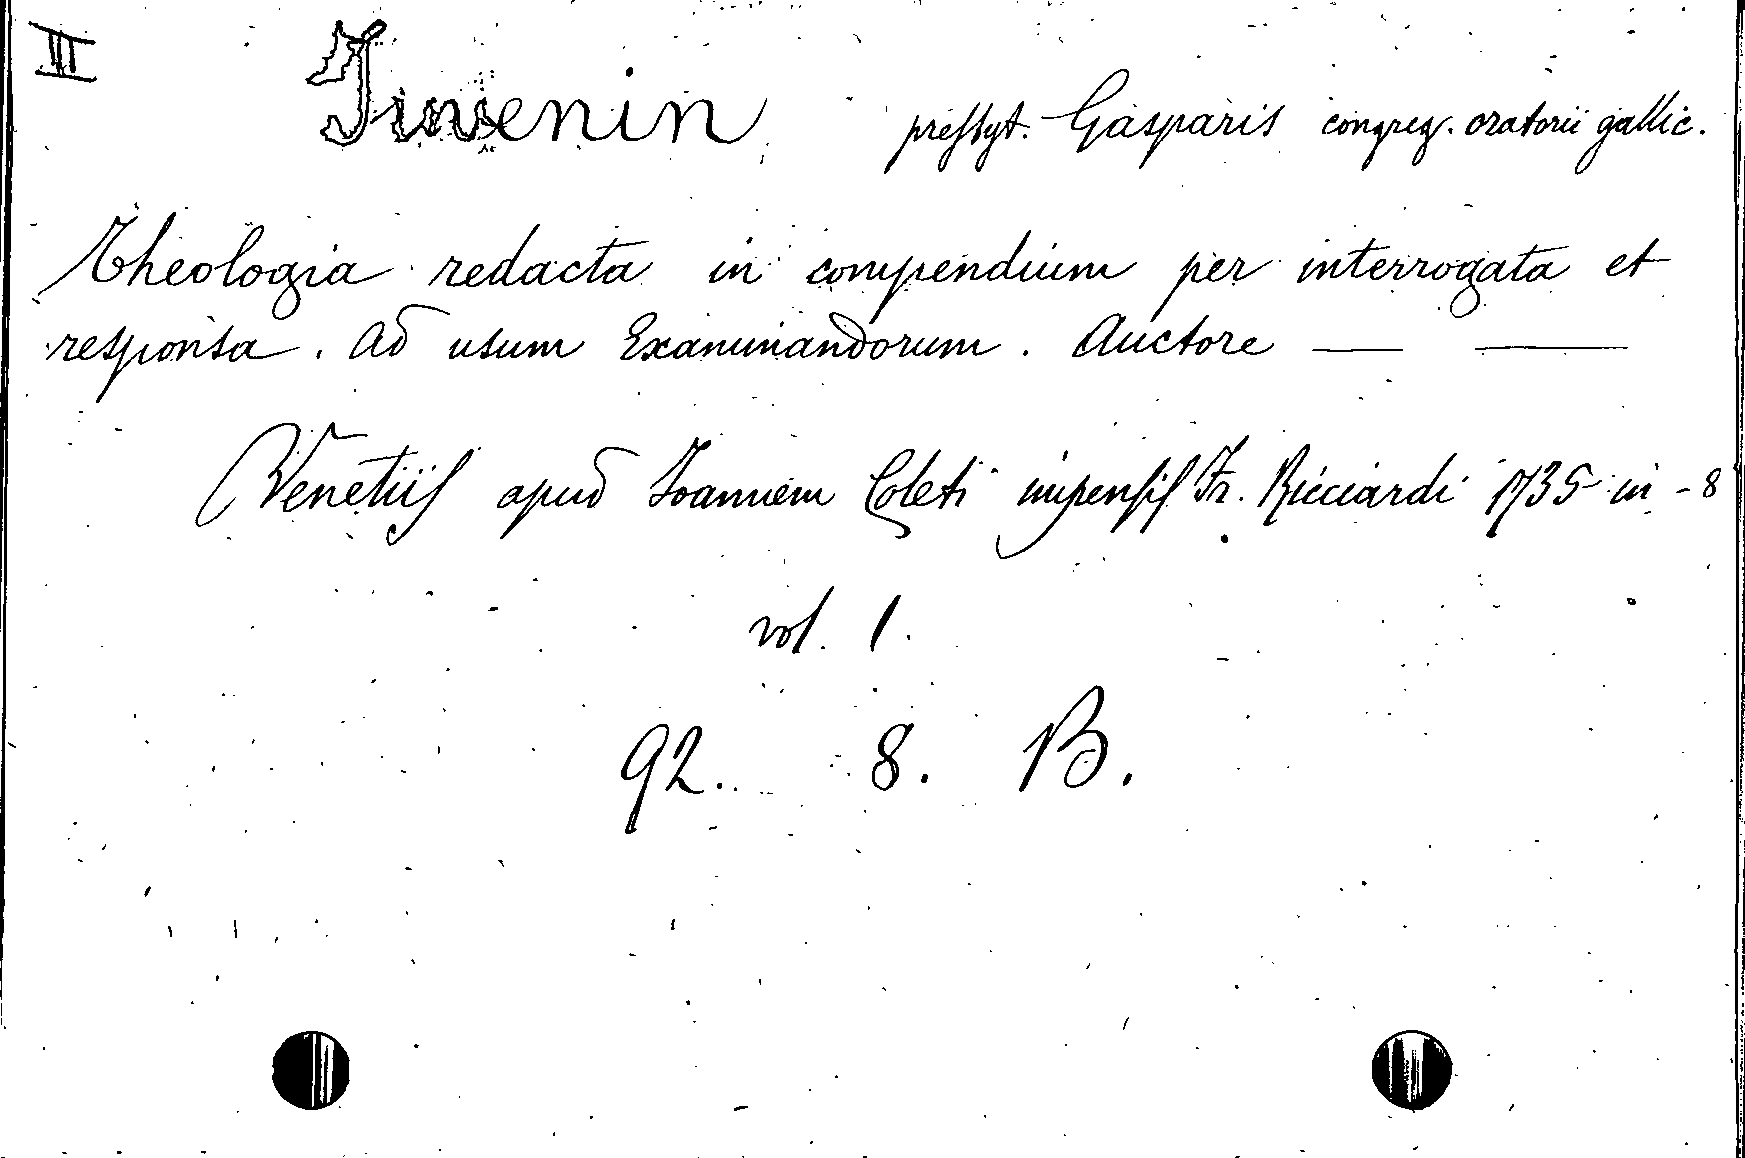 II
Juvenin presbyt. Gasparis congreg. oratorii gallic.
Theologia redacta in compendium per interrogata et
responsa. Ad usum Examinandorum. Auctore — —
Venetiis apud Joannem Coleti impensis Fr. Ricciardi 1735 in-8
vol. 1.
92. 8. B.